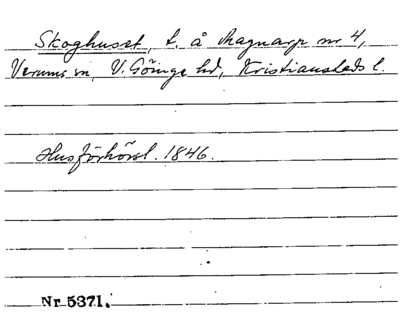 Skoghuset, t. å Magnarp nr 4,
Verums sn, V. Göinge hd, Kristianstads l.
Husförhörsl. 1846.
Nr 5371.